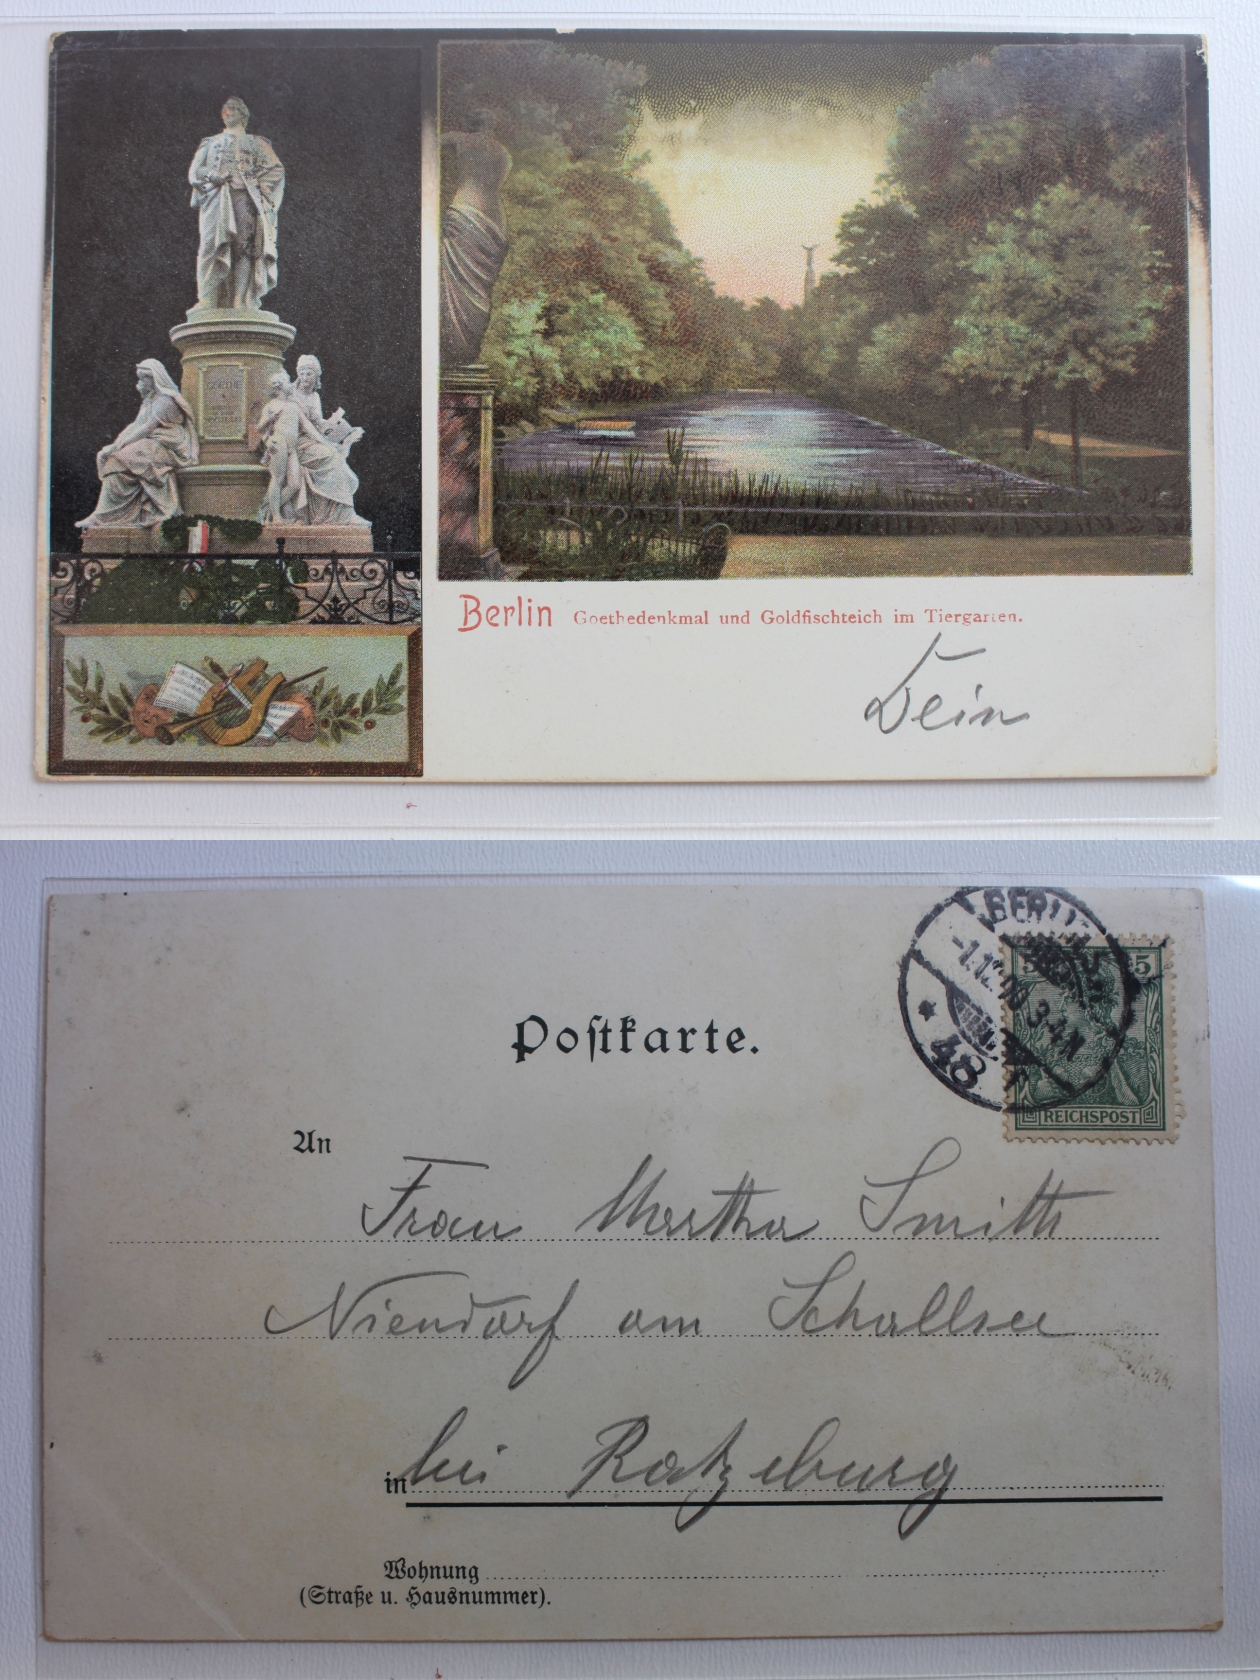 Berlin Goethedenkmal und Goldfischteich im Tiergarten.
Dein
Poſtkarte.
BERLIN
-1.12.00 3-4N
* 48 f
5 5
REICHSPOST
An
Frau Martha Smith
Niendorf am Schallsee
in bei Ratzeburg
Wohnung
(Straße u. Hausnummer).